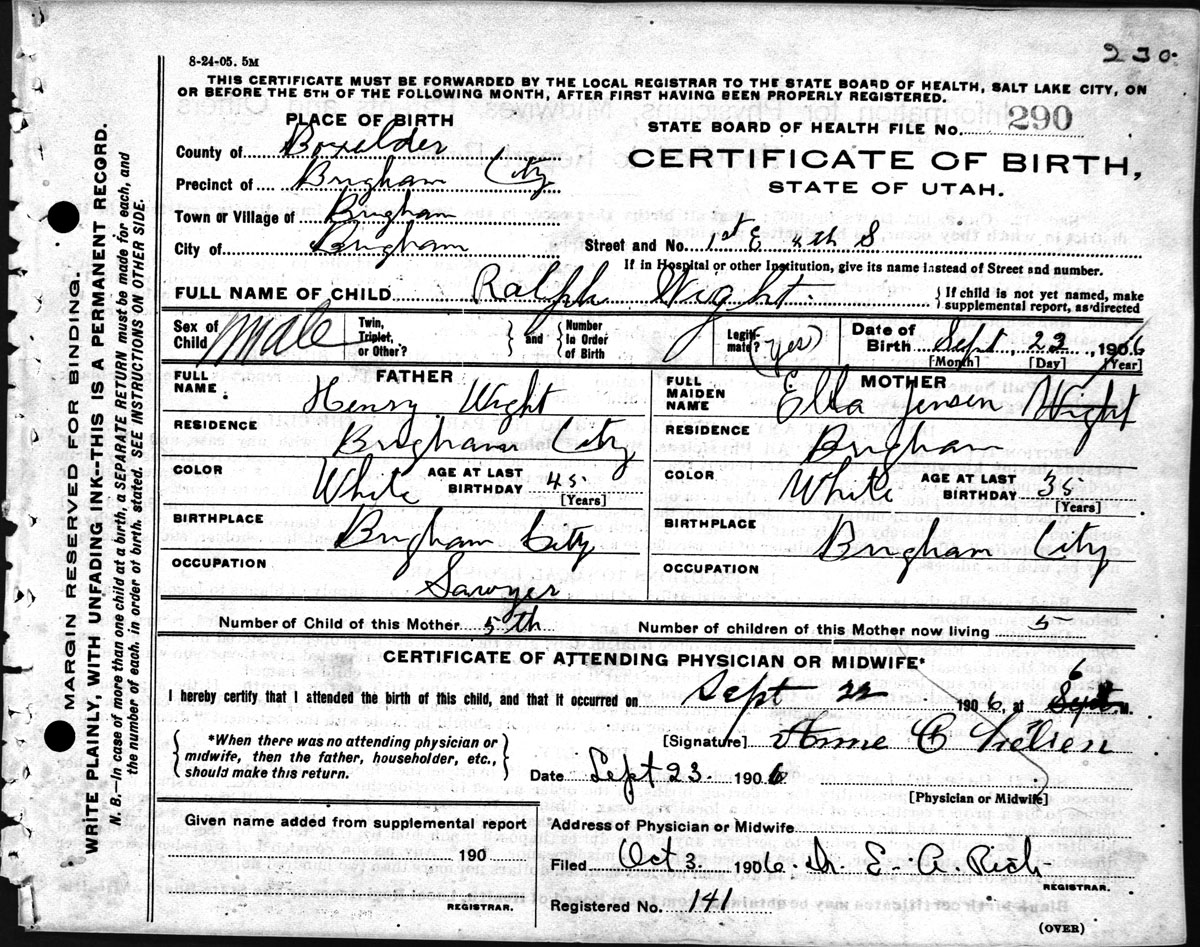 230.
8-24-05. 5M
THIS CERTIFICATE MUST BE FORWARDED BY THE LOCAL REGISTRAR TO THE STATE BOARD OF HEALTH, SALT LAKE CITY, ON
OR BEFORE THE 5TH OF THE FOLLOWING MONTH, AFTER FIRST HAVING BEEN PROPERLY REGISTERED.
PLACE OF BIRTH
STATE BOARD OF HEALTH FILE NO. 290
County of Boxelder
CERTIFICATE OF BIRTH,
STATE OF UTAH.
Precinct of Brigham City
Town or Village of Brigham
City of Brigham Street and No. 1st E 4th S
If in Hospital or other Institution, give its name instead of Street and number.
FULL NAME OF CHILD Ralph Wight. { If child is not yet named, make
supplemental report, as directed
Sex of Child Male Twin, Triplet, or Other? } and { Number In Order of Birth Legitimate? (yes) Date of Birth Sept, 22, 1906
[Month] [Day] [Year]
FATHER
FULL NAME Henry Wight
RESIDENCE Brigham City
COLOR White AGE AT LAST BIRTHDAY 45 [Years]
BIRTHPLACE Brigham City
OCCUPATION Sawyer
MOTHER
FULL MAIDEN NAME Ella Jensen Wight
RESIDENCE Brigham
COLOR White AGE AT LAST BIRTHDAY 35 [Years]
BIRTHPLACE Brigham City
OCCUPATION
Number of Child of this Mother 5th Number of children of this Mother now living 5
CERTIFICATE OF ATTENDING PHYSICIAN OR MIDWIFE*
I hereby certify that I attended the birth of this child, and that it occurred on Sept 22 1906, at 6
*When there was no attending physician or
midwife, then the father, householder, etc.,
should make this return.
[Signature] Anne C Nielsen
Date Sept 23. 1906
[Physician or Midwife]
Given name added from supplemental report
190
REGISTRAR.
Address of Physician or Midwife
Filed Oct 3. 1906. Dr. E. A. Rich
REGISTRAR.
Registered No. 141
(OVER)
MARGIN RESERVED FOR BINDING.
WRITE PLAINLY, WITH UNFADING INK--THIS IS A PERMANENT RECORD.
N. B.—In case of more than one child at a birth, a SEPARATE RETURN must be made for each, and
the number of each, in order of birth, stated. SEE INSTRUCTIONS ON OTHER SIDE.